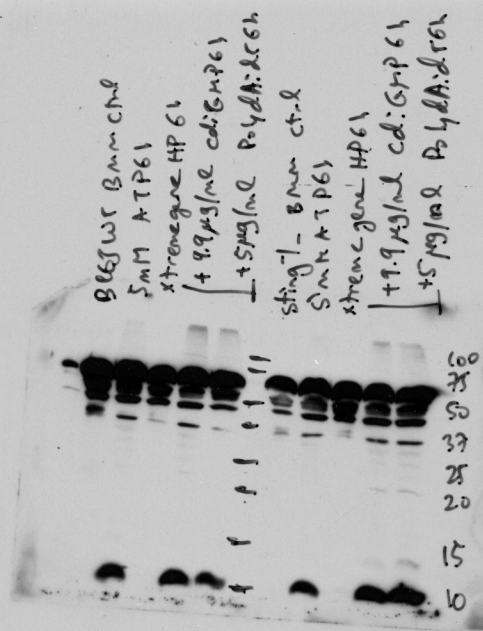 B6J WT Bmm ctrl
5mM ATP6h
xtremegene HP 6h
+9.9µg/ml cdiGMP6h
+5µg/ml PolydAidT6h
Sting-/- Bmm ctrl
5mM ATP6h
xtremegene HP6h
+9.9µg/ml cdiGMP6h
+5µg/ml PolydAidT6h
100
75
50
37
25
20
15
10